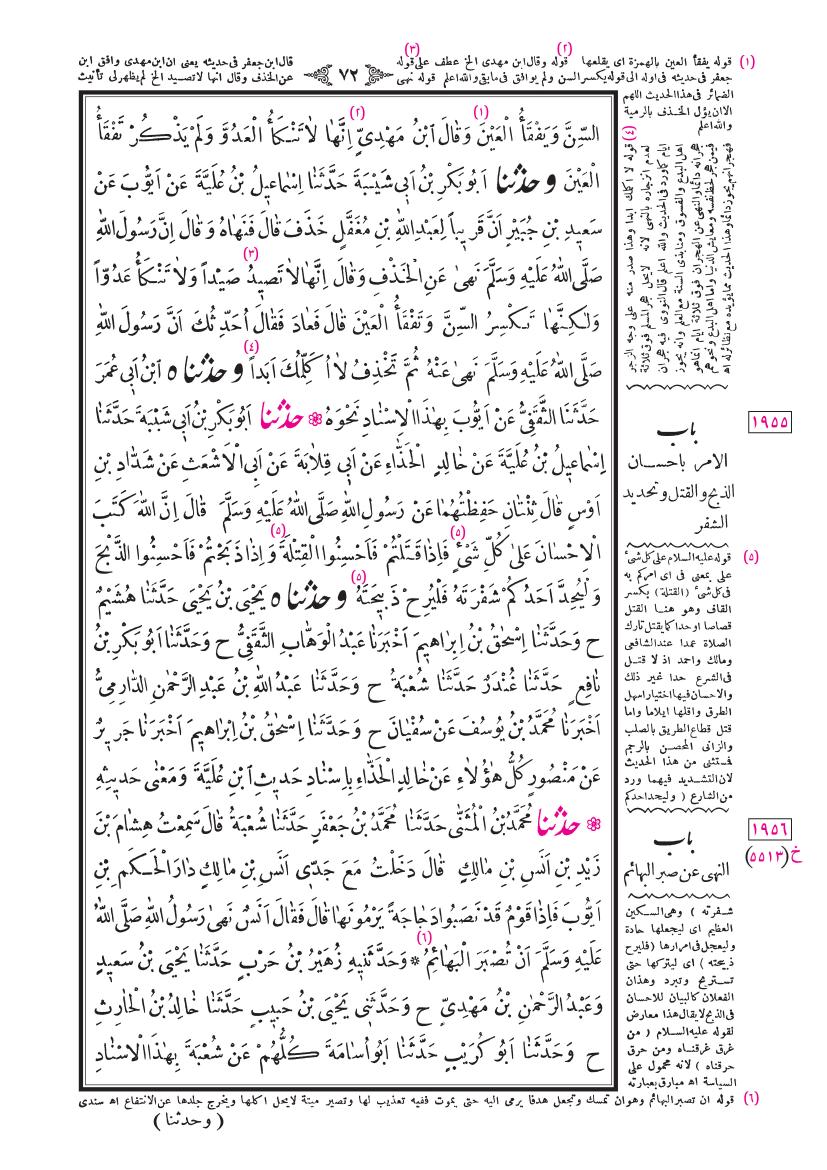 (١) قوله يفقأ العين بالهمزة اى يقلعها (٢) قوله وقال ابن مهدى الخ عطف على قوله (٣) قال ابن جعفر فى حديثه يعنى ان ابن مهدى وافق ابن
جعفر فى حديثه فى اوله الى قوله يكسر السن ولم يوافق فى مابقى والله اعلم قوله نهى
٧٢
عن الخذف وقال انها لا تصيد الخ لم يظهر لى تأنيث
الضمائر فى هذا الحديث اللهم
الا ان يؤل الخذف بالرمية
والله اعلم
السِّنَّ وَيَفْقَأُ الْعَيْنَ (١) وَقَالَ ابْنُ مَهْدِيٍّ (٢) اِنَّهَا لَا تَنْكَأُ الْعَدُوَّ وَلَمْ يَذْكُرْ تَفْقَأُ
الْعَيْنَ وحدثنا اَبُو بَكْرِ بْنُ اَبِي شَيْبَةَ حَدَّثَنَا اِسْمَاعِيلُ بْنُ عُلَيَّةَ عَنْ اَيُّوبَ عَنْ
سَعِيدِ بْنِ جُبَيْرٍ اَنَّ قَرِيباً لِعَبْدِ اللهِ بْنِ مُغَفَّلٍ خَذَفَ قَالَ فَنَهَاهُ وَقَالَ اِنَّ رَسُولَ اللهِ
صَلَّى اللهُ عَلَيْهِ وَسَلَّمَ نَهٰى عَنِ الْخَذْفِ وَقَالَ اِنَّهَا لَا تَصِيدُ (٣) صَيْداً وَلَا تَنْكَأُ عَدُوّاً
وَلٰكِنَّهَا تَكْسِرُ السِّنَّ وَتَفْقَأُ الْعَيْنَ قَالَ فَعَادَ فَقَالَ اُحَدِّثُكَ اَنَّ رَسُولَ اللهِ
صَلَّى اللهُ عَلَيْهِ وَسَلَّمَ نَهٰى عَنْهُ ثُمَّ تَخْذِفُ لَا اُكَلِّمُكَ اَبَداً (٤) وحدثناه ابْنُ اَبِي عُمَرَ
حَدَّثَنَا الثَّقَفِيُّ عَنْ اَيُّوبَ بِهٰذَا الْاِسْنَادِ نَحْوَهُ ❁ حدثنا اَبُو بَكْرِ بْنُ اَبِي شَيْبَةَ حَدَّثَنَا
اِسْمَاعِيلُ بْنُ عُلَيَّةَ عَنْ خَالِدٍ الْحَذَّاءِ عَنْ اَبِي قِلَابَةَ عَنْ اَبِي الْاَشْعَثِ عَنْ شَدَّادِ بْنِ
اَوْسٍ قَالَ ثِنْتَانِ حَفِظْتُهُمَا عَنْ رَسُولِ اللهِ صَلَّى اللهُ عَلَيْهِ وَسَلَّمَ قَالَ اِنَّ اللهَ كَتَبَ
الْاِحْسَانَ عَلٰى كُلِّ شَىْءٍ (٥) فَاِذَا قَتَلْتُمْ فَاَحْسِنُوا الْقِتْلَةَ (٥) وَاِذَا ذَبَحْتُمْ فَاَحْسِنُوا الذَّبْحَ
وَلْيُحِدَّ اَحَدُكُمْ شَفْرَتَهُ فَلْيُرِحْ ذَبِيحَتَهُ (٥) وحدثناه يَحْيَى بْنُ يَحْيٰى حَدَّثَنَا هُشَيْمٌ
ح وَحَدَّثَنَا اِسْحٰقُ بْنُ اِبْرَاهِيمَ اَخْبَرَنَا عَبْدُ الْوَهَّابِ الثَّقَفِيُّ ح وَحَدَّثَنَا اَبُو بَكْرِ بْنُ
نَافِعٍ حَدَّثَنَا غُنْدَرٌ حَدَّثَنَا شُعْبَةُ ح وَحَدَّثَنَا عَبْدُ اللهِ بْنُ عَبْدِ الرَّحْمٰنِ الدَّارِمِيُّ
اَخْبَرَنَا مُحَمَّدُ بْنُ يُوسُفَ عَنْ سُفْيَانَ ح وَحَدَّثَنَا اِسْحٰقُ بْنُ اِبْرَاهِيمَ اَخْبَرَنَا جَرِيرٌ
عَنْ مَنْصُورٍ كُلُّ هٰؤُلَاءِ عَنْ خَالِدٍ الْحَذَّاءِ بِاِسْنَادِ حَدِيثِ ابْنِ عُلَيَّةَ وَمَعْنٰى حَدِيثِهِ
❁ حدثنا مُحَمَّدُ بْنُ الْمُثَنّٰى حَدَّثَنَا مُحَمَّدُ بْنُ جَعْفَرٍ حَدَّثَنَا شُعْبَةُ قَالَ سَمِعْتُ هِشَامَ بْنَ
زَيْدِ بْنِ اَنَسِ بْنِ مَالِكٍ قَالَ دَخَلْتُ مَعَ جَدِّي اَنَسِ بْنِ مَالِكٍ دَارَ الْحَكَمِ بْنِ
اَيُّوبَ فَاِذَا قَوْمٌ قَدْ نَصَبُوا دَجَاجَةً يَرْمُونَهَا قَالَ فَقَالَ اَنَسٌ نَهٰى رَسُولُ اللهِ صَلَّى اللهُ
عَلَيْهِ وَسَلَّمَ اَنْ تُصْبَرَ الْبَهَائِمُ (٦) * وَحَدَّثَنِيهِ زُهَيْرُ بْنُ حَرْبٍ حَدَّثَنَا يَحْيَى بْنُ سَعِيدٍ
وَعَبْدُ الرَّحْمٰنِ بْنُ مَهْدِيٍّ ح وَحَدَّثَنِي يَحْيَى بْنُ حَبِيبٍ حَدَّثَنَا خَالِدُ بْنُ الْحَارِثِ
ح وَحَدَّثَنَا اَبُو كُرَيْبٍ حَدَّثَنَا اَبُو اُسَامَةَ كُلُّهُمْ عَنْ شُعْبَةَ بِهٰذَا الْاِسْنَادِ
(٤) قوله لا اكلمك ابدا وهذا صدر منه على وجه الزجر
لعدم انزجاره بالنهى لانه لا يحل هجر المسلم فوق ثلاثة
ايام كما ورد فى الحديث والله اعلم قال النووى فيه هجران
اهل البدع والفسوق ومنابذى السنة مع العلم وانه يجوز
هجرانه دائما والنهى عن الهجران فوق ثلاثة ايام انما هو
فيمن هجر لحظ نفسه ومعايش الدنيا واما اهل البدع ونحوهم
فهجرانهم يجوز دائما وهذا الحديث مما يؤيده مع نظائر له اه
١٩٥٥
باب
الامر باحسان
الذبح والقتل وتحديد
الشفر
(٥) قوله عليه السلام على كل شئ
على بمعنى فى اى امركم به
فى كل شئ ( القتلة ) بكسر
القاف وهو هنا القتل
قصاصا او حدا كما يقتل تارك
الصلاة عمدا عند الشافعى
ومالك واحمد اذ لا قتل
فى الشرع حدا غير ذلك
والاحسان فيها اختيار اسهل
الطرق واقلها ايلاما واما
قتل قطاع الطريق بالصلب
والزانى المحصن بالرجم
فمستثنى من هذا الحديث
لان التشديد فيهما ورد
من الشارع ( وليحد احدكم
١٩٥٦
خ (٥٥١٣)
باب
النهى عن صبر البهائم
شفرته ) وهى السكين
العظيم اى ليجعلها حادة
وليعجل فى امرارها ( فليرح
ذبيحته ) اى ليتركها حتى
تستريح وتبرد وهذان
الفعلان كالبيان للاحسان
فى الذبح لا يقال هذا معارض
لقوله عليه السلام ( من
غرق غرقناه ومن حرق
حرقناه ) لانه محمول على
السياسة اه مبارق بعبارته
(٦) قوله ان تصبر البهائم وهو ان تمسك وتجعل هدفا يرمى اليه حتى يموت ففيه تعذيب لها وتصير ميتة لايحل اكلها ويخرج جلدها عن الانتفاع اه سندى
( وحدثنا )